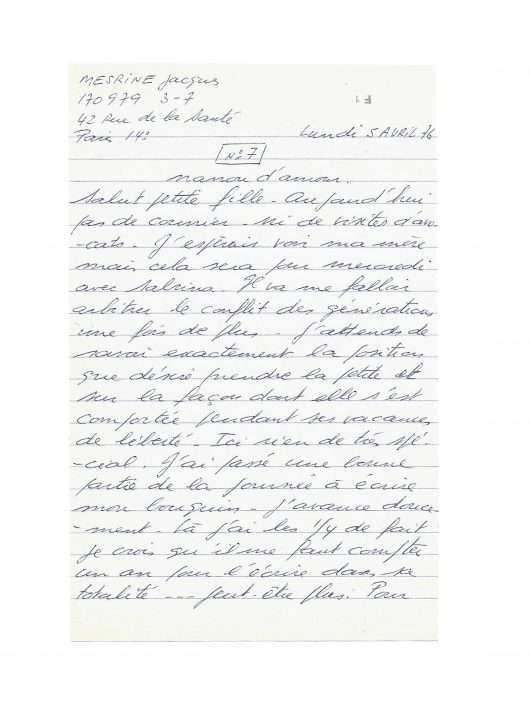 MESRINE Jacques
170979 3-7
42 Rue de la Santé
Paris 14°
Lundi 5 AVRIL 76
N° 7
nanou d'amour.
Salut petite fille - Aujourd'hui
pas de courrier - ni de visites d'avo-
-cats. J'espérais voir ma mère
mais cela sera pour mercredi
avec Sabrina. Il va me falloir
arbitrer le conflit des générations
une fois de plus - J'attends de
savoir exactement la position
que désire prendre la petite et
sur la façon dont elle s'est
comportée pendant ses vacances
de liberté - Ici rien de très spé-
-cial. J'ai passé une bonne
partie de la journée à écrire
mon bouquin - J'avance douce-
-ment - Là j'ai les 1/4 de fait
Je crois qu'il me faut compter
un an pour l'écrire dans sa
totalité --- peut-être plus. Pour